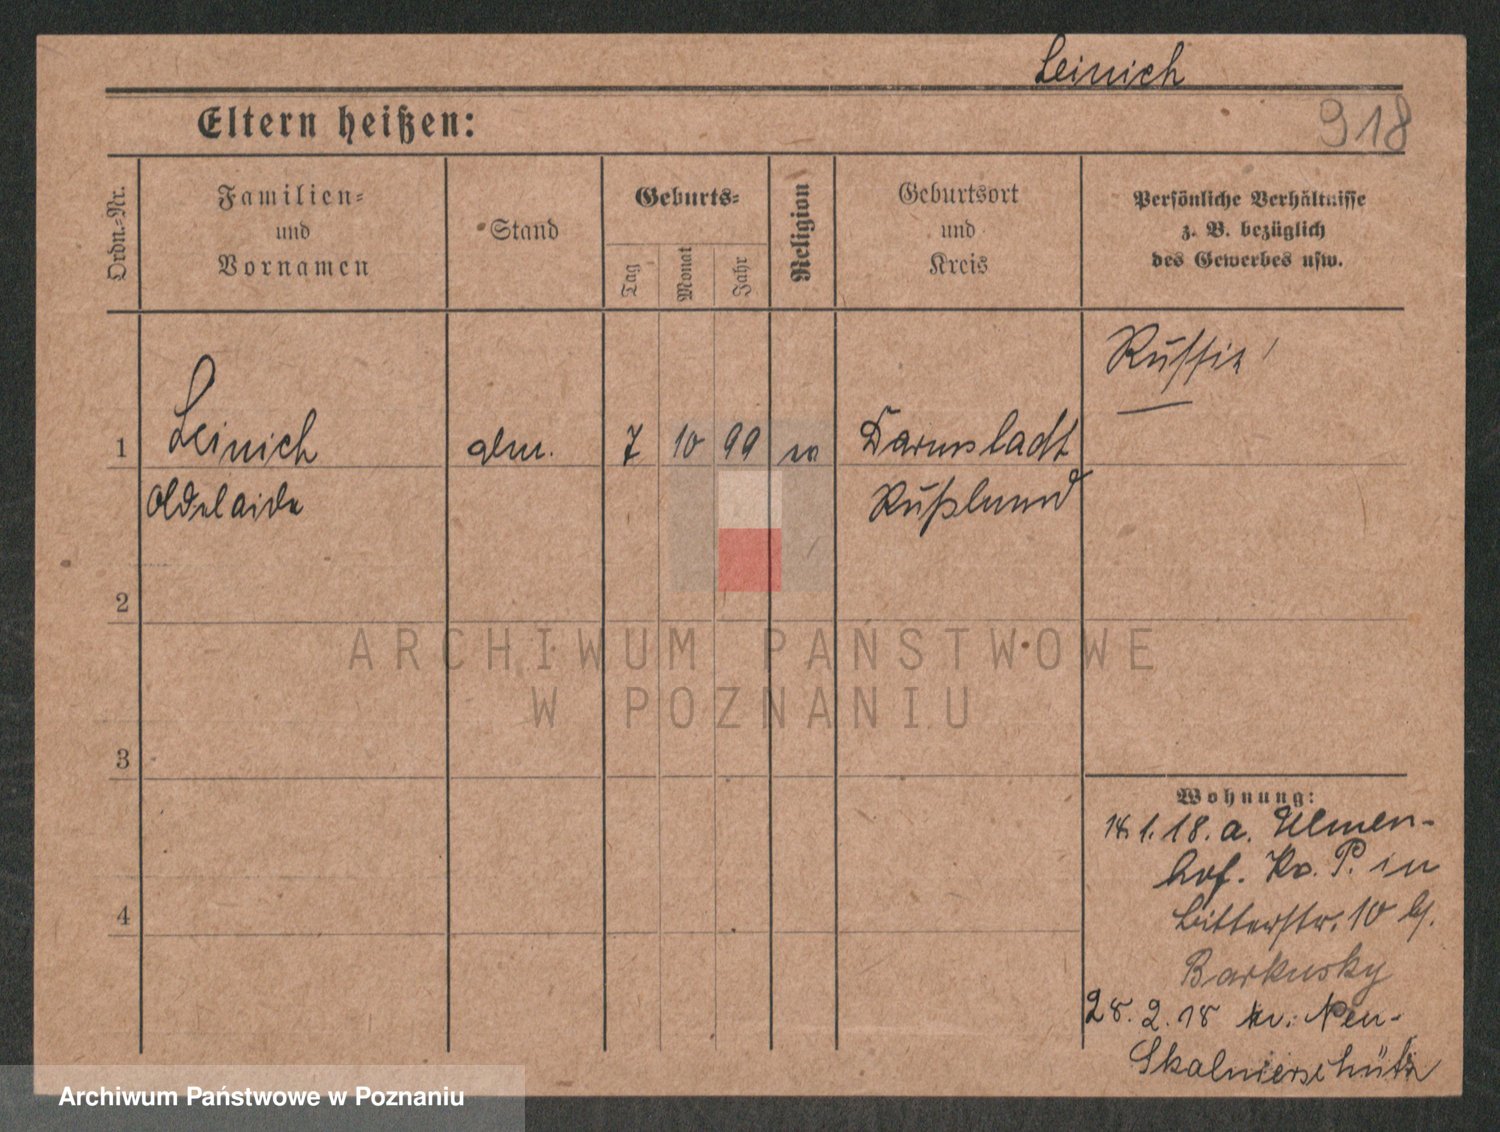 Leinich
918
Eltern heißen:
Ordn.-Nr.
Familien-
und
Vornamen
Stand
Geburts-
Tag
Monat
Jahr
Religion
Geburtsort
und
Kreis
Persönliche Verhältnisse
z. B. bezüglich
des Gewerbes usw.
Russin
1 Leinich 7 10 99 Darmstadt
Adelaide Rußland
2
3
4
Wohnung:
18.1.18. a. Ulmen-
hof. Kr. P. in
Ritterstr. 10 b/.
Barkusky
28.2.18 Neu-
Skalmierschütz
ARCHIWUM PAŃSTWOWE
W POZNANIU
Archiwum Państwowe w Poznaniu